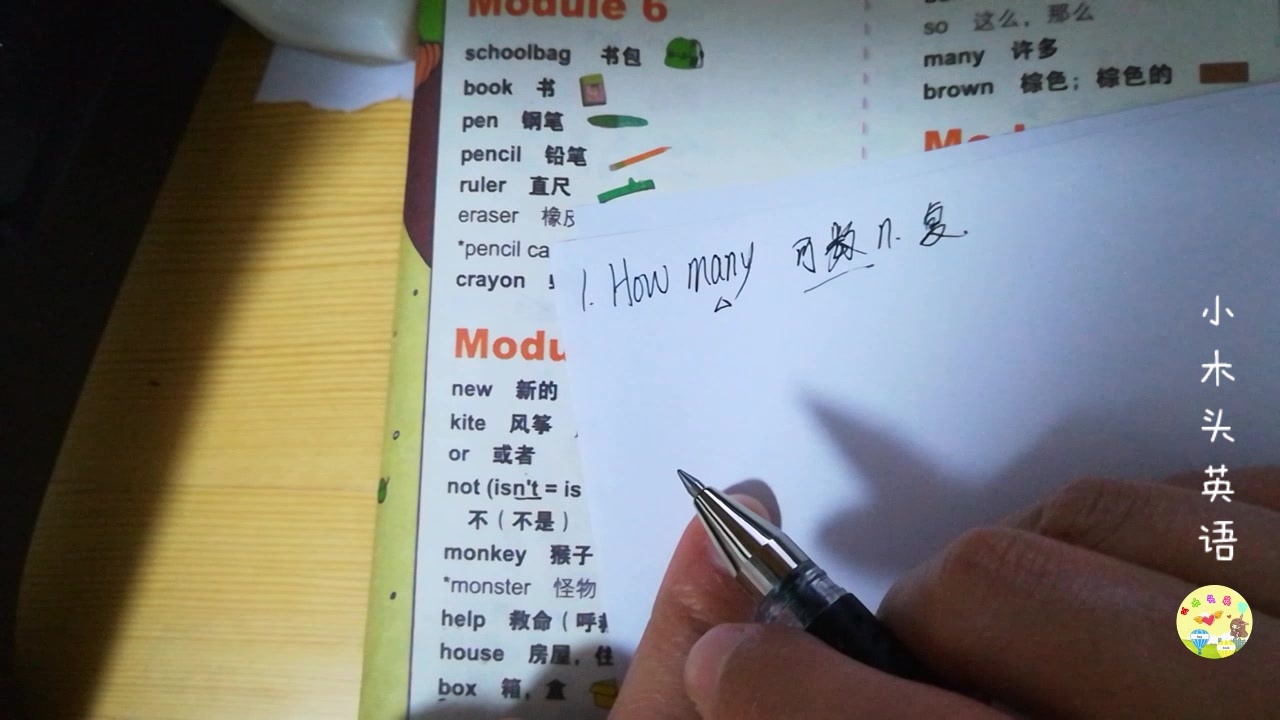 Module 6
schoolbag 书包
book 书
pen 钢笔
pencil 铅笔
ruler 直尺
eraser 橡
*pencil ca
crayon
Modu
new 新的
kite 风筝
or 或者
not (isn't = is
不（不是）
monkey 猴子
*monster 怪物
help 救命（呼
house 房屋，住
box 箱，盒
so 这么，那么
many 许多
brown 棕色；棕色的
1. How many 可数 n. 复.
小木头英语